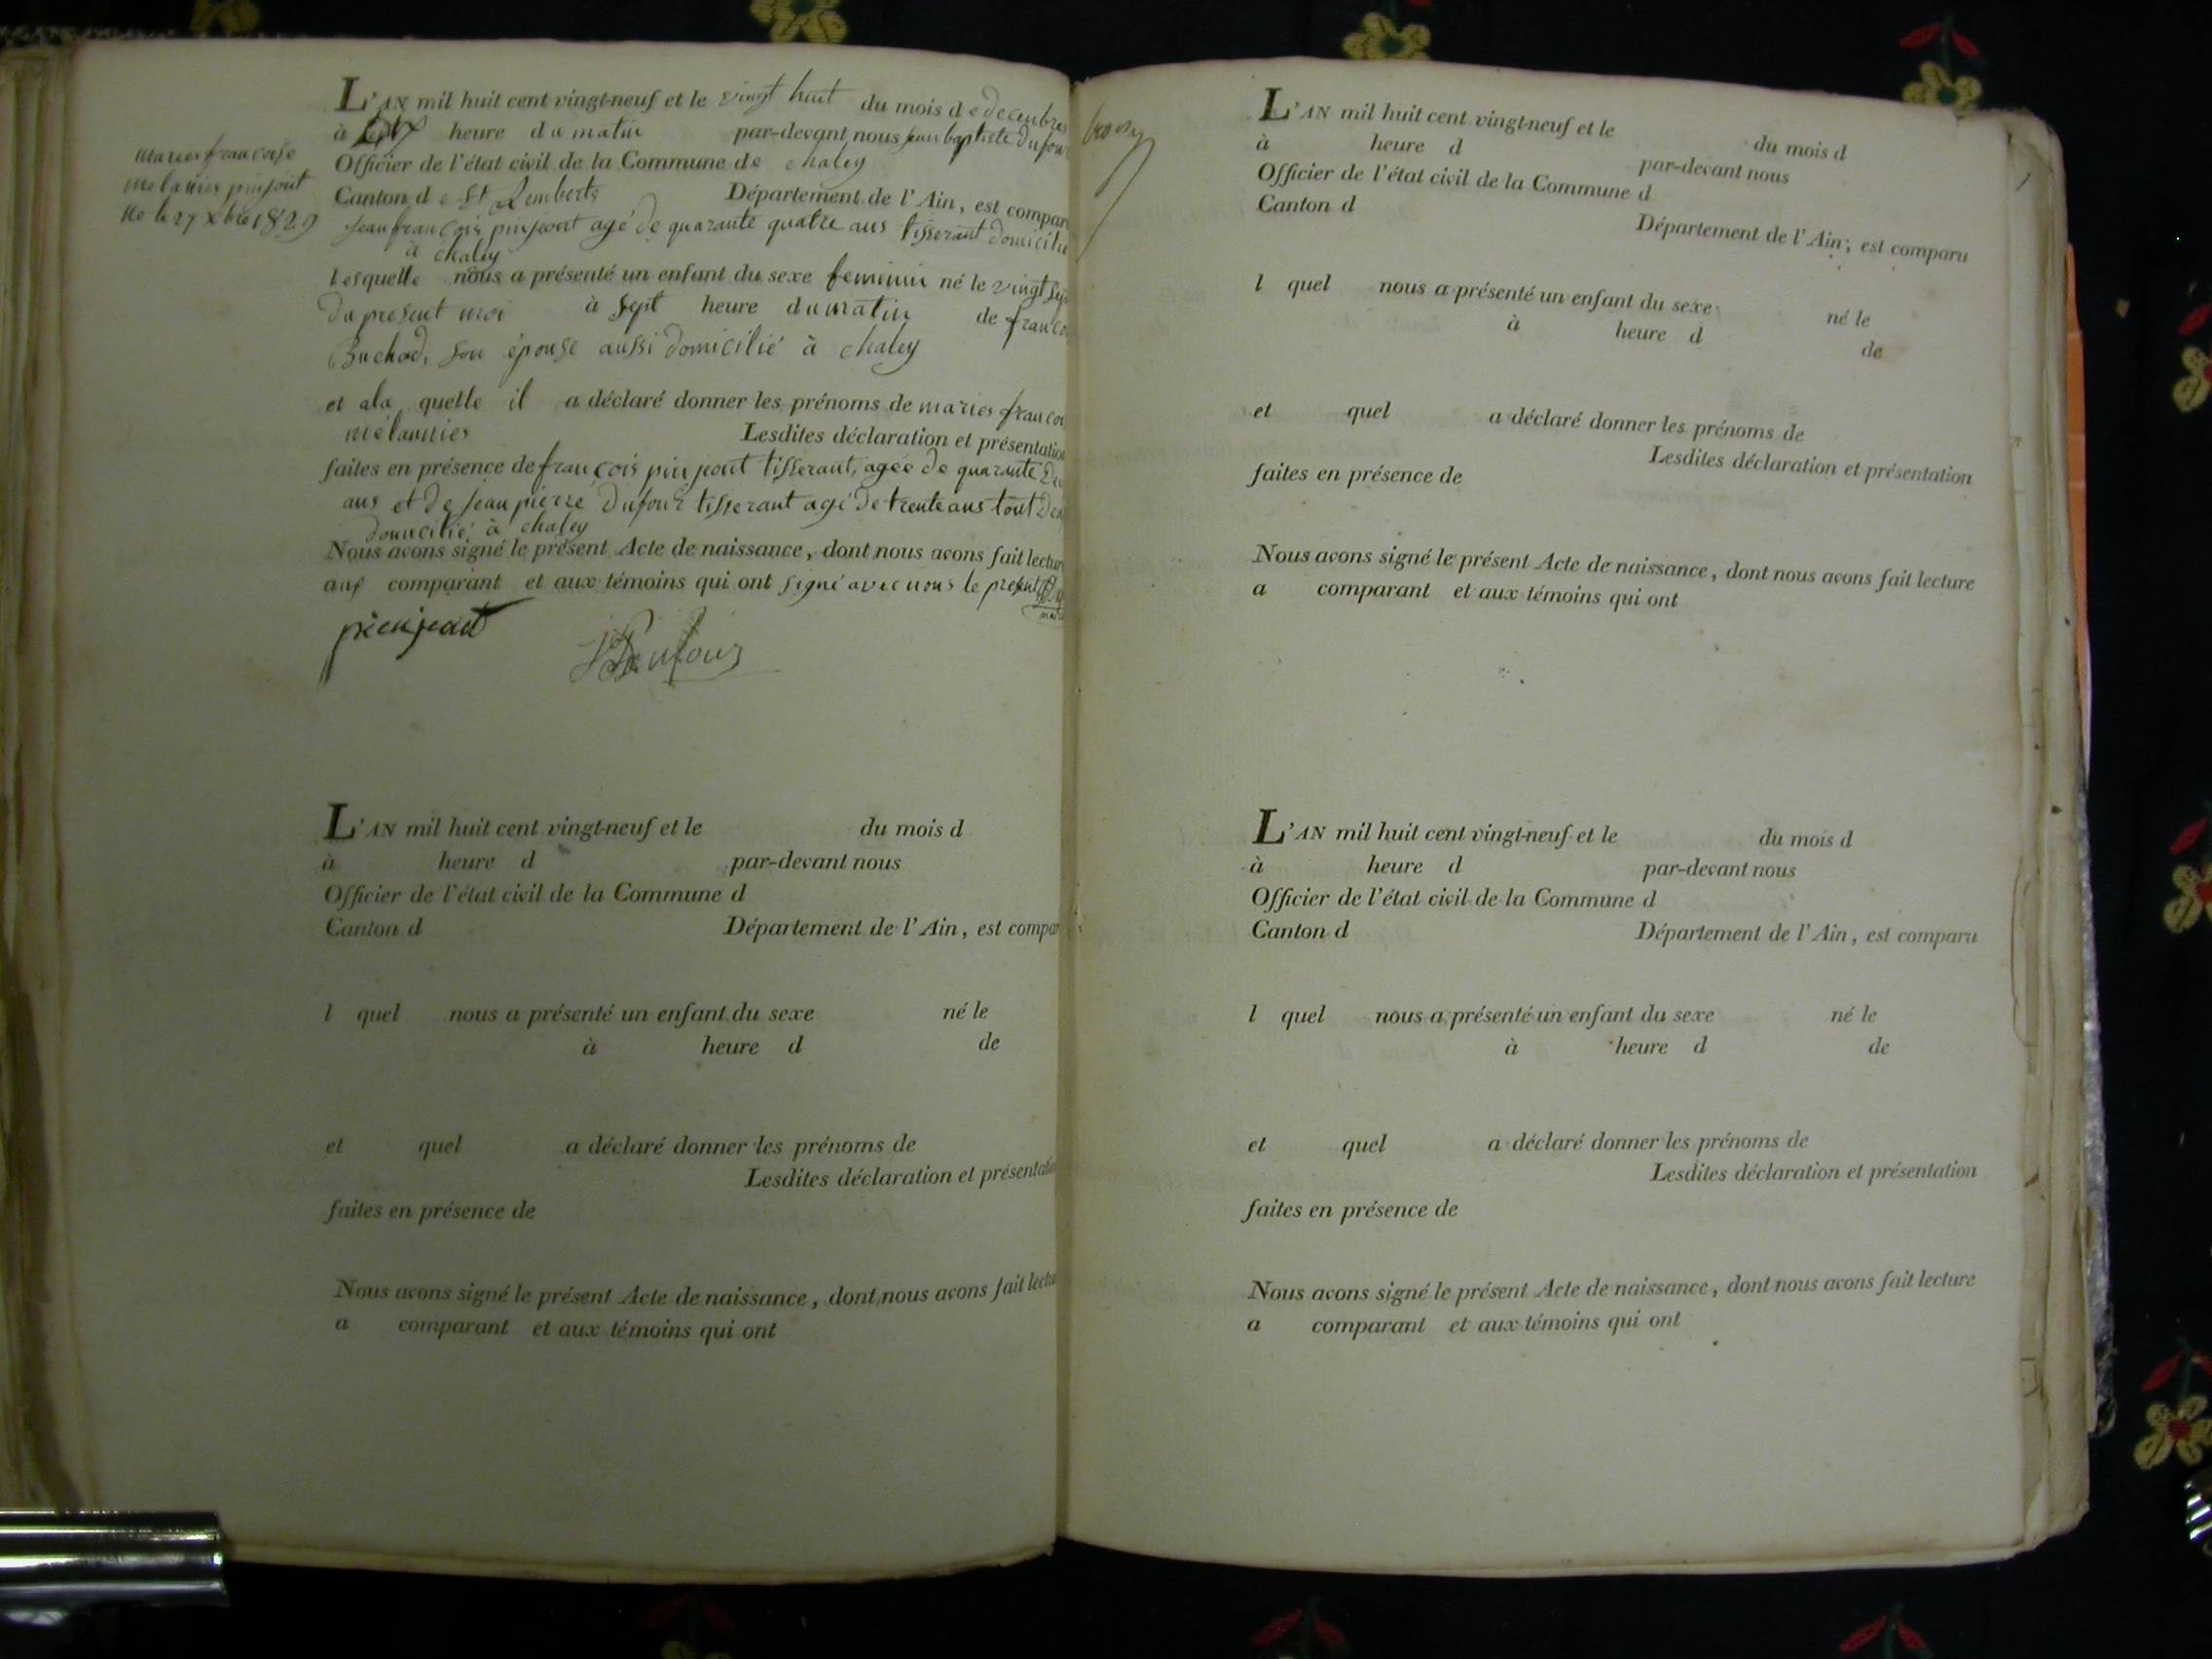 L'AN mil huit cent vingt-neuf et le vingt huit du mois de decembre
à heure du matin par-devant nous jean baptiste dufour
Officier de l'état civil de la Commune de chaley
Canton de St Remberts Département de l'Ain, est compar
jean francois pinjeont agé de quarante quatre ans tisserant domicilié
à chaley
Lesquelle nous a présenté un enfant du sexe feminin né le vingt sep
du present moi à sept heure du matin de franco
Buchod, son épouse aussi domicilié à chaley
et ala quelle il a déclaré donner les prénoms de maries francoi
mélannies Lesdites déclaration et présentation
faites en présence de francois pinjeont tisserant, agée de quarante
ans et de jean pierre dufour tisserant agé de trente ans tout
domicilié à chaley
Nous avons signé le présent Acte de naissance, dont nous avons fait lectur
aux comparant et aux témoins qui ont signé avec nous le present
maries francoise
melanies pinjont
Ne le 27 xbre 1829
pinjeont
JP Dufour
L'AN mil huit cent vingt-neuf et le du mois d
à heure d par-devant nous
Officier de l'état civil de la Commune d
Canton d Département de l'Ain, est compar
l quel nous a présenté un enfant du sexe né le
à heure d de
et quel a déclaré donner les prénoms de
Lesdites déclaration et présentation
faites en présence de
Nous avons signé le présent Acte de naissance, dont nous avons fait lectu
a comparant et aux témoins qui ont
L'AN mil huit cent vingt-neuf et le du mois d
à heure d par-devant nous
Officier de l'état civil de la Commune d
Canton d Département de l'Ain, est comparu
l quel nous a présenté un enfant du sexe né le
à heure d de
et quel a déclaré donner les prénoms de
Lesdites déclaration et présentation
faites en présence de
Nous avons signé le présent Acte de naissance, dont nous avons fait lecture
a comparant et aux témoins qui ont
L'AN mil huit cent vingt-neuf et le du mois d
à heure d par-devant nous
Officier de l'état civil de la Commune d
Canton d Département de l'Ain, est comparu
l quel nous a présenté un enfant du sexe né le
à heure d de
et quel a déclaré donner les prénoms de
Lesdites déclaration et présentation
faites en présence de
Nous avons signé le présent Acte de naissance, dont nous avons fait lecture
a comparant et aux témoins qui ont